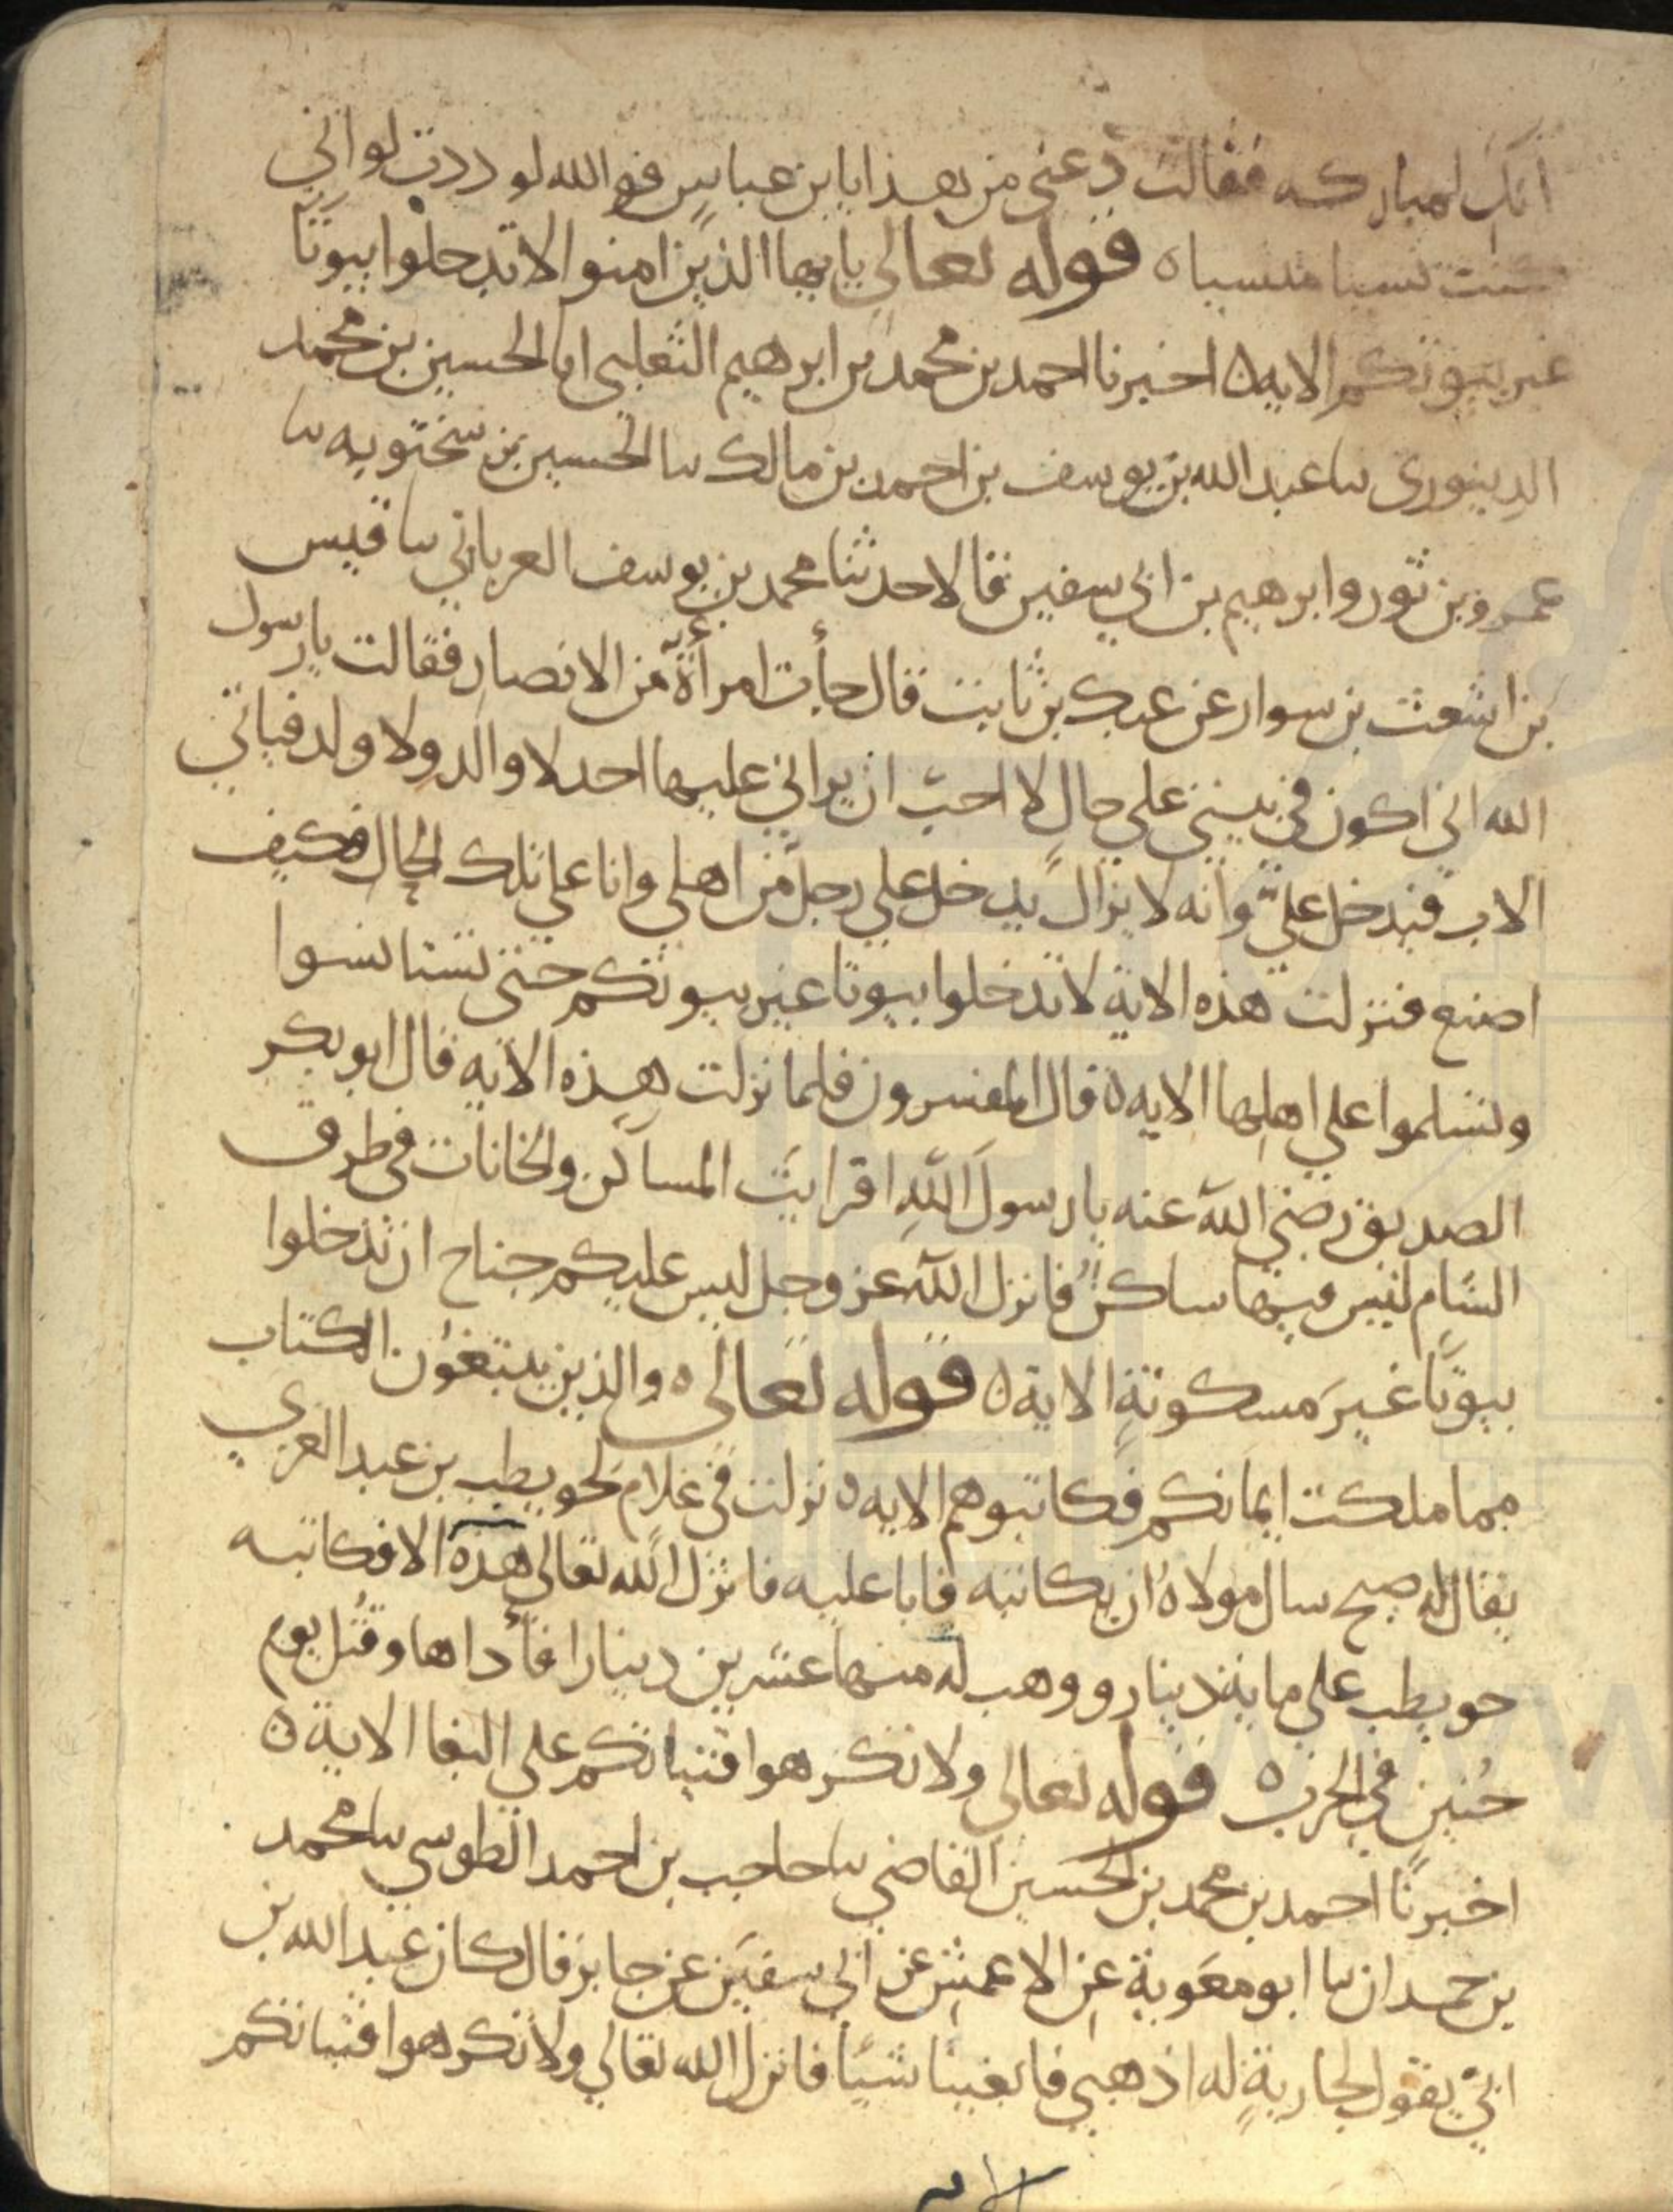 انك لمباركه فقالت دعني من هذا يا بن عباس فوالله لوددت لو اني
كنت نسيا منسيا ه قوله تعالى يا يها الذين امنوا لا تدخلوا بيوتا
غير بيوتكم الايه ه اخبرنا احمد بن محمد بن ابرهيم الثعلبي انا الحسين بن محمد
الدينوري سا عبد الله بن يوسف بن احمد بن مالك سا الحسين بن سختويه سا
عمرو بن ثور وابرهيم بن ابي سفين قالا حدثنا محمد بن يوسف العرياني سا قيس
بن اشعث بن سوار عن عدي بن ثابت قال جأت امرأة من الانصار فقالت يا رسول
الله اني اكون في بيتي على حال لا احب ان يراني عليها احد لا والد ولا ولد فياتي
الاب فيدخل علي وانه لا يزال يدخل علي رجل من اهلي وانا على تلك الحال فكيف
اصنع فنزلت هذه الاية لا تدخلوا بيوتا غير بيوتكم حتى تستانسوا
وتسلموا على اهلها الايه ه قال المفسرون فلما نزلت هذه الايه قال ابو بكر
الصديق رضي الله عنه يا رسول الله افرايت المساكن والخانات في طرق
الشام ليس فيها ساكن فانزل الله عز وجل ليس عليكم جناح ان تدخلوا
بيوتا غير مسكونة الاية ه قوله تعالى ه والذين يبتغون الكتاب
مما ملكت ايمانكم فكاتبوهم الايه ه نزلت في غلام لحويطب بن عبد العزي
يقال له صبح سال مولاه ان يكاتبه فابا عليه فانزل الله تعالى هذه الا فكاتبه
حويطب على ماية دينار ووهب له منها عشرين دينارا فأداها وقتل يوم
حنين في الحرب ه قوله تعالى ولا تكرهوا فتياتكم على البغا الاية ه
اخبرنا احمد بن محمد بن الحسين القاضي سا حاجب بن احمد الطوسي سا محمد
بن حمدان سا ابو معوية عن الاعمش عن ابي سفين عن جابر قال كان عبد الله بن
ابي يقول لجارية له اذهبي فابغينا شيئا فانزل الله تعالى ولا تكرهوا فتياتكم